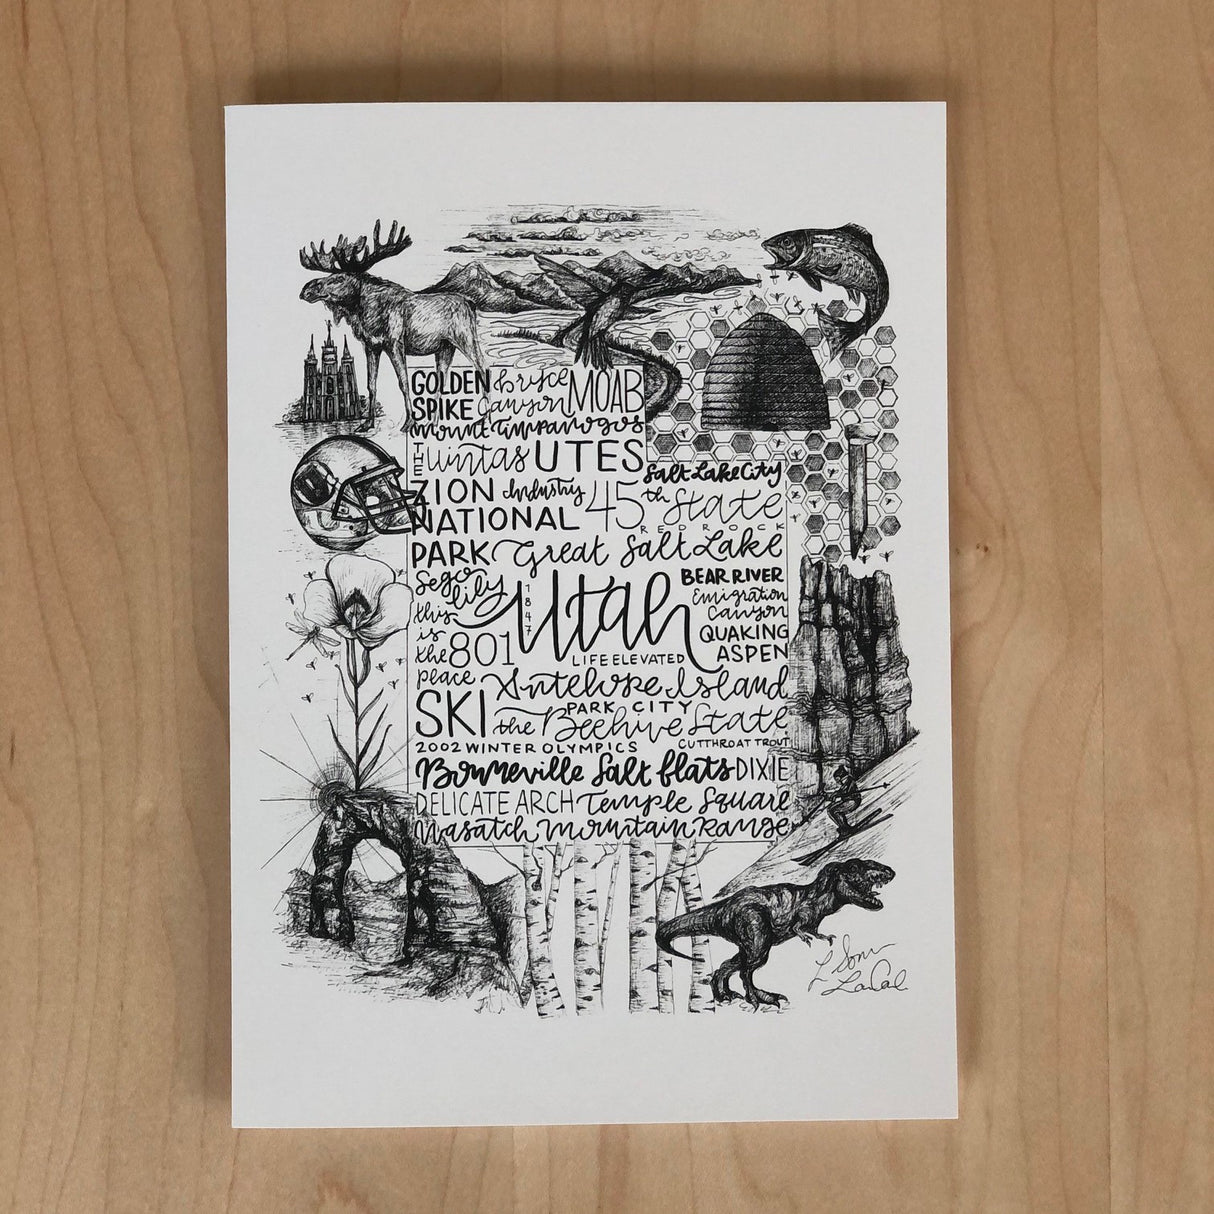 GOLDEN SPIKE
Bryce Canyon
MOAB
Mount Timpanogos
THE Uintas
UTES
Salt Lake City
ZION NATIONAL PARK
Industry
45th State
REDROCK
Great Salt Lake
Sego lily
1847
Utah
LIFE ELEVATED
BEAR RIVER
Emigration Canyon
QUAKING ASPEN
this is the peace
801
SKI
Antelope Island
PARK CITY
the Beehive State
2002 WINTER OLYMPICS
CUTTHROAT TROUT
Bonneville Salt flats
DIXIE
DELICATE ARCH
Temple Square
Wasatch Mountain Range